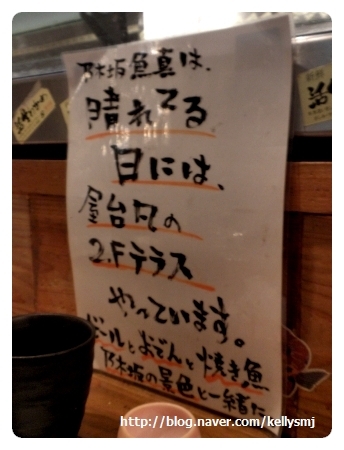 乃木坂魚真は、
晴れてる
日には、
屋台風の
2.Fテラス
やっています。
ビールとおでんと焼き魚
乃木坂の景色と一緒に
http://blog.naver.com/kellysmj